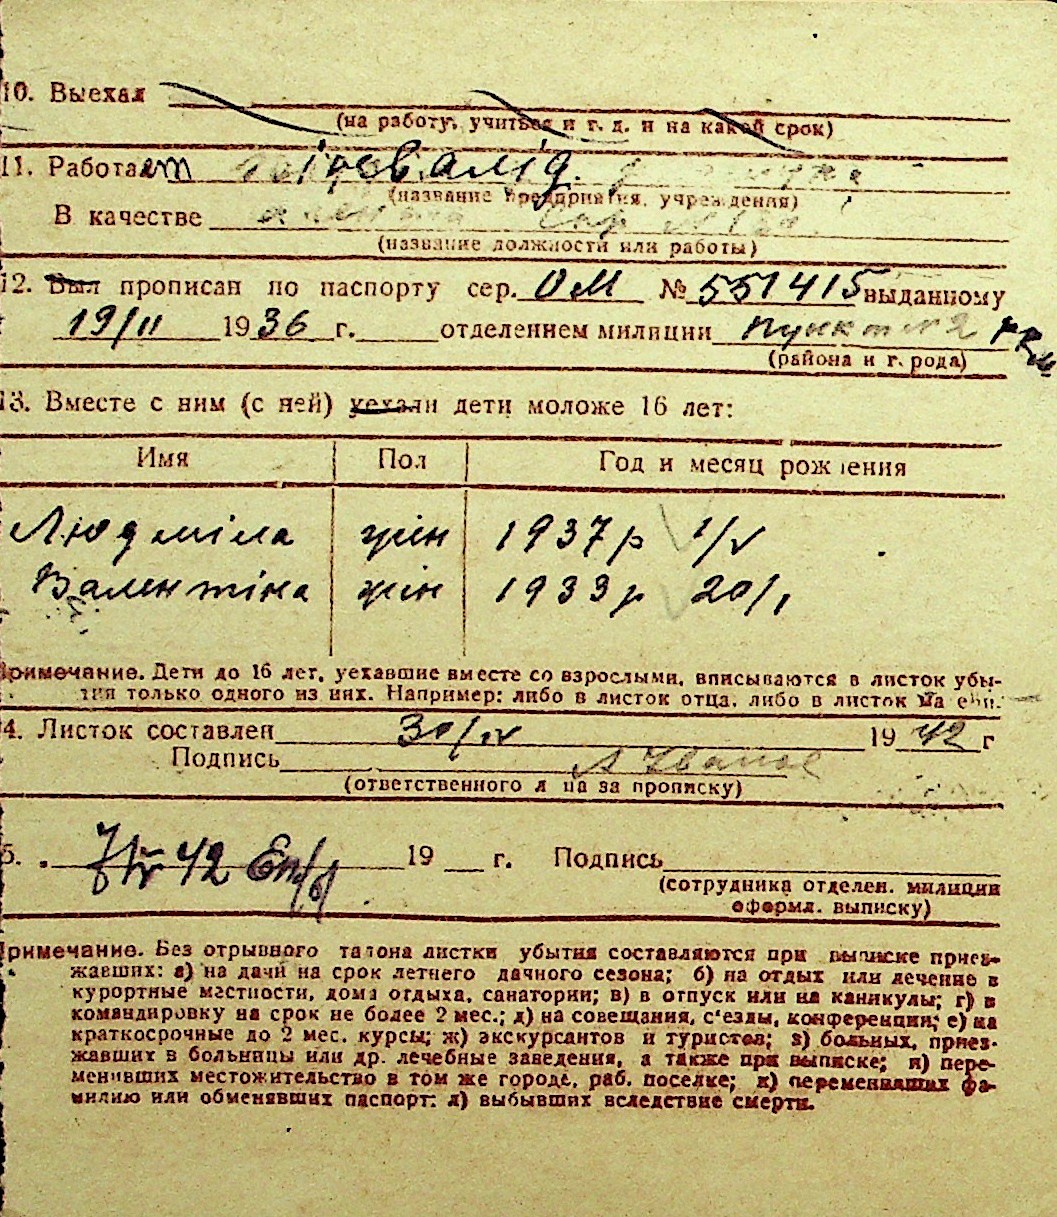 10. Выехал
(на работу, учиться и г. д. и на какой срок)
11. Работает інвалід.
(название предприятия, учреждения)
В качестве
(название должности или работы)
12. Был прописан по паспорту сер. ОМ № 551415 выданному
19/II 1936 г. отделением милиции пункт № 2
(района и г. рода)
13. Вместе с ним (с ней) уехали дети моложе 16 лет:
Имя Пол Год и месяц рождения
Людміла жін 1937 р 1/V
Валентіна жін 1933 р 20/I
Примечание. Дети до 16 лет, уехавшие вместе со взрослыми, вписываются в листок убы-
тия только одного из них. Например: либо в листок отца, либо в листок матери.
14. Листок составлен 30/IV 1942 г
Подпись
(ответственного лица за прописку)
15. 42 19 г. Подпись
(сотрудника отделен. милиции
оформл. выписку)
Примечание. Без отрывного талона листки убытия составляются при выписке приез-
жавших: а) на дачи на срок летнего дачного сезона; б) на отдых или лечение в
курортные местности, дома отдыха, санатории; в) в отпуск или на каникулы; г) в
командировку на срок не более 2 мес.; д) на совещания, с'езды, конференции; е) на
краткосрочные до 2 мес. курсы; ж) экскурсантов и туристов; з) больных, приез-
жавших в больницы или др. лечебные заведения, а также при выписке; и) пере-
менивших местожительство в том же городе, раб. поселке; к) переменивших фа-
милию или обменявших паспорт; л) выбывших вследствие смерти.